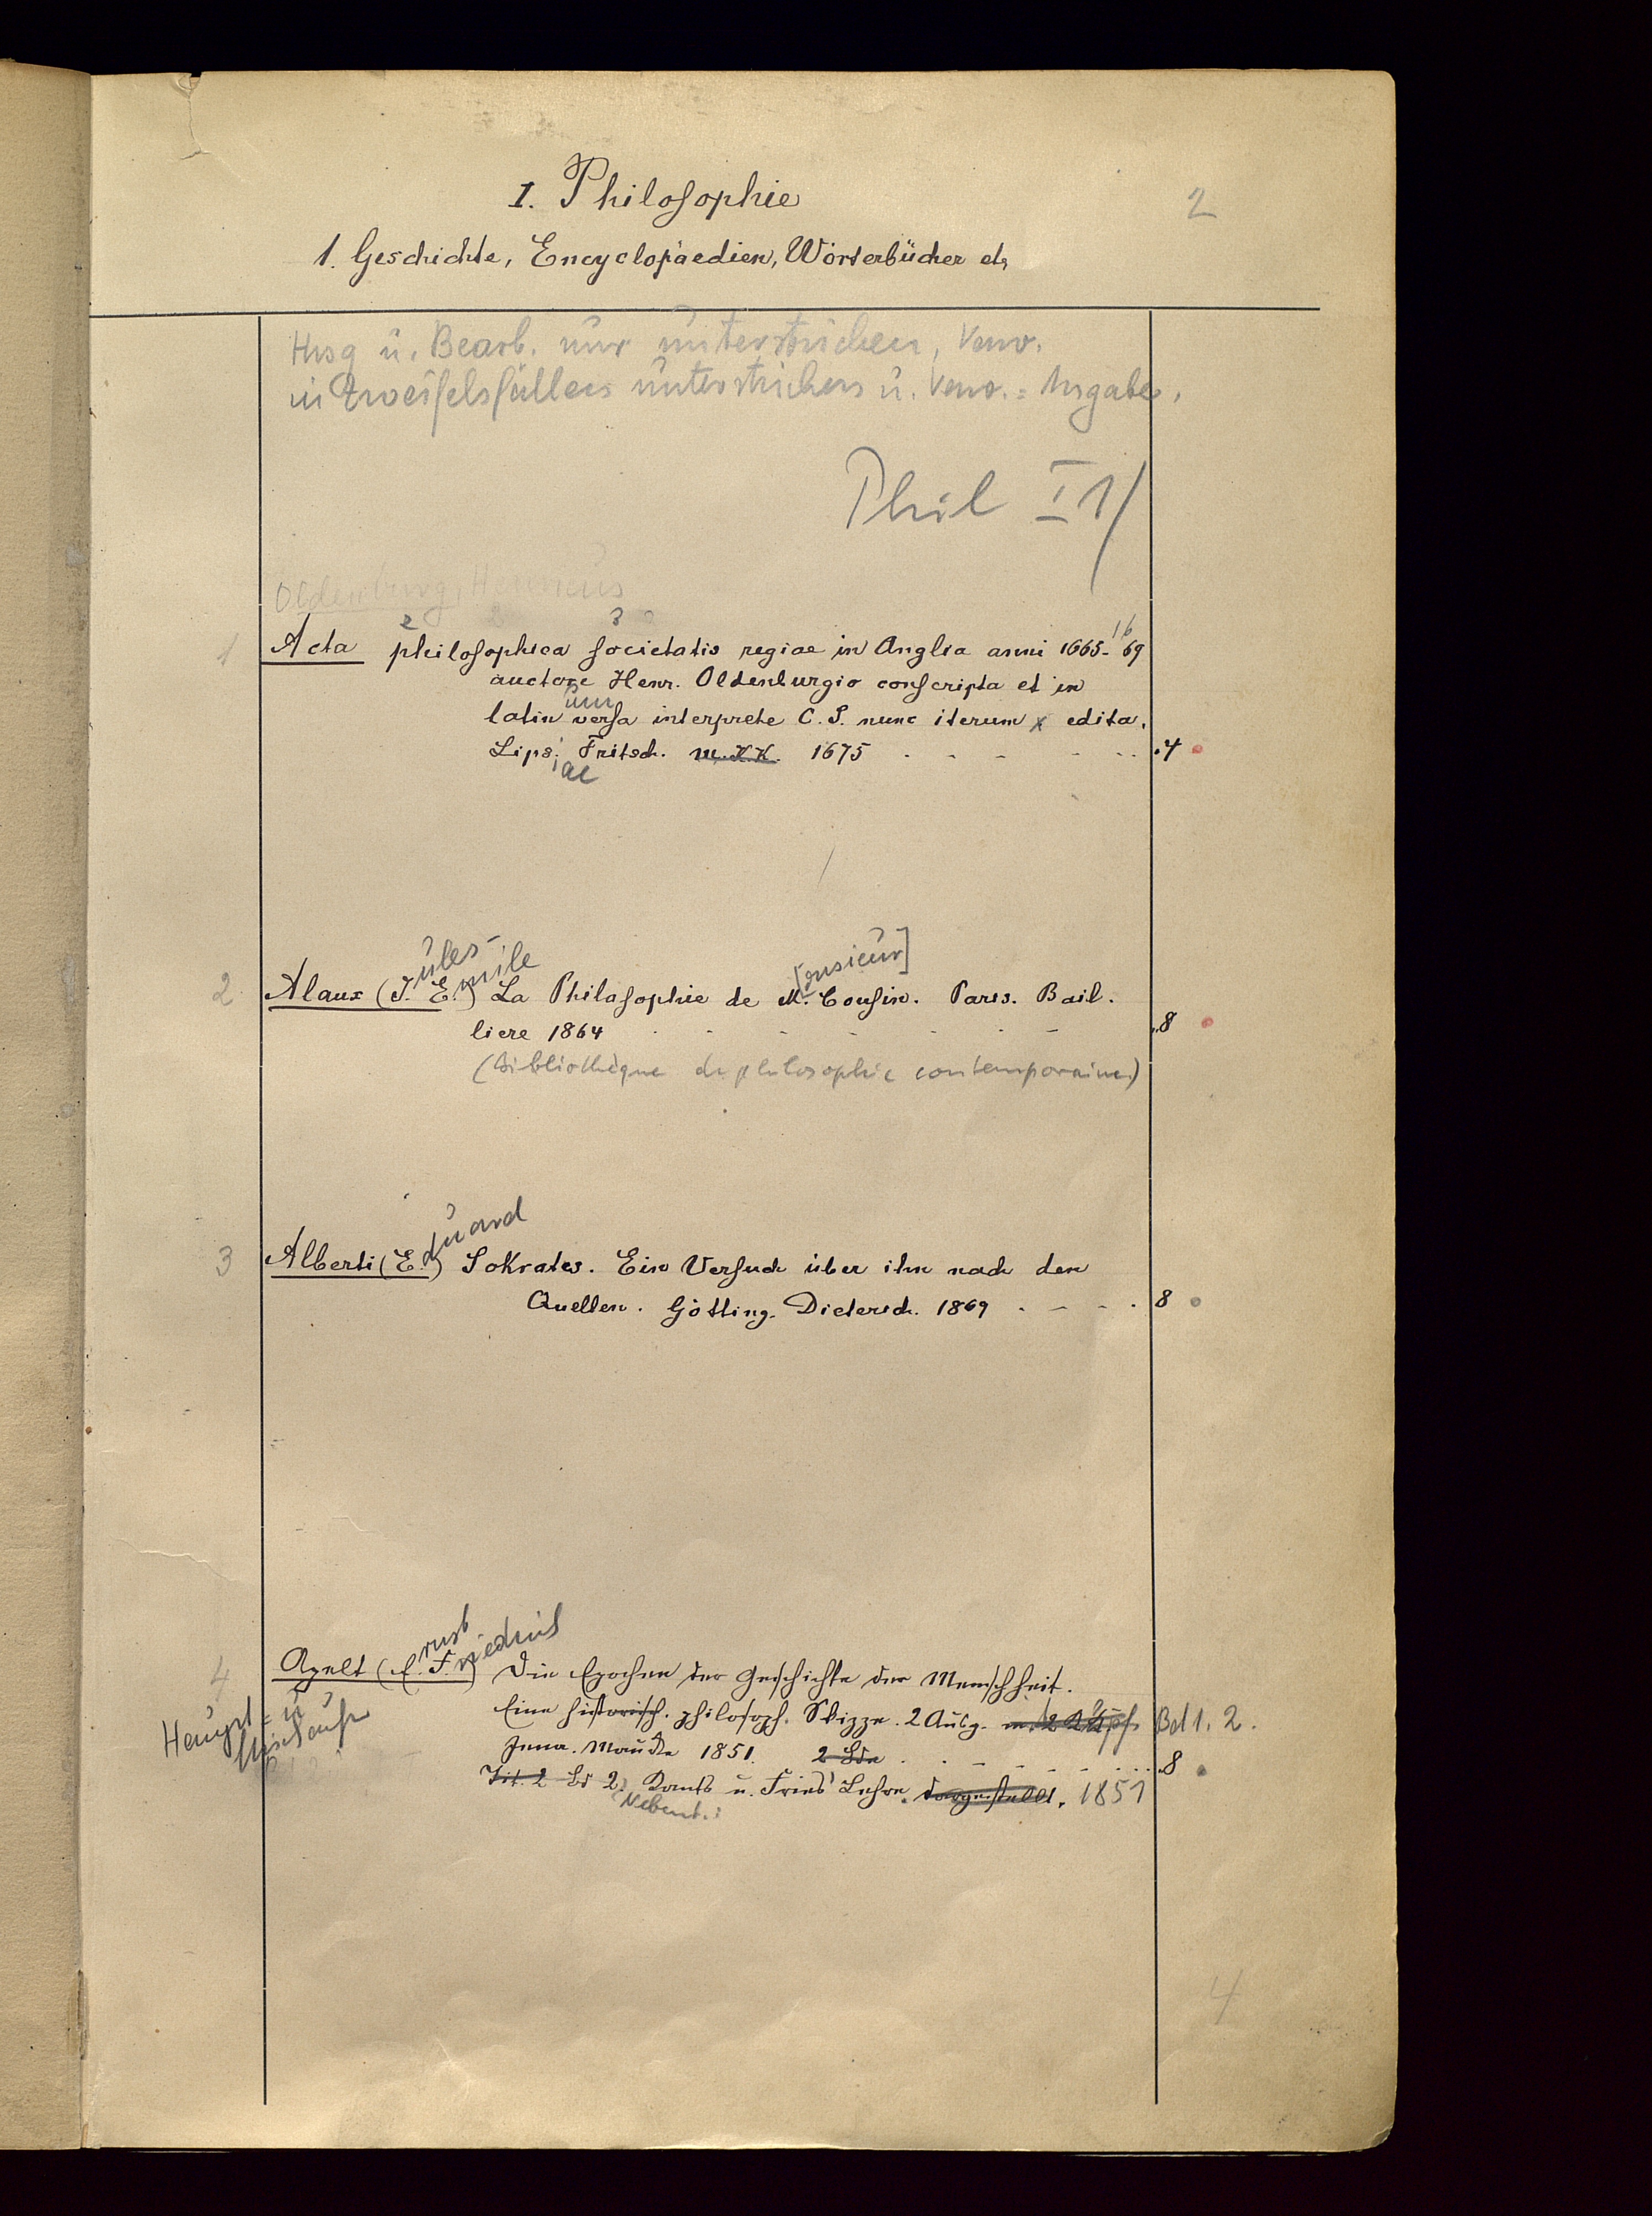 I. Philosophie
2
1. Geschichte, Encyclopaedien, Wörterbücher etc
Hrsg u. Bearb. nur unterstrichen, Verw.
in Zweifelsfällen unterstrichen u. Verw. = Angabe.
Phil I 1/
Oldenburg, Henricus
2 3
1 Acta philosophica societatis regiae in Anglia anni 1665-1669
auctore Henr. Oldenburgio conscripta et in
latinum versa interprete C. S. nunc iterum x edita.
Lipsiae Fritsch. m. K.K. 1675 . . . . . 4
2 Alaux (Jules-Emile) La Philosophie de M[onsieur] Cousin. Paris. Bail-
liere 1864 . . . . . 8
(Bibliothèque de philosophie contemporaine)
3 Alberti (Eduard) Sokrates. Ein Versuch über ihn nach den
Quellen. Götting. Dieterich. 1869 . . . . 8
4 Apelt (Ernst Friedrich) Die Epochen der Geschichte der Menschheit.
Eine historisch. philosoph. Skizze. 2 Ausg. Bd 1. 2.
Haupt- u
Jena. Mauke 1851. 2 Bde . . . . . 8
Tit. 2 Bd 2. Kants u. Fries' Lehre. dargestellt. 1851
Nebent.:
4